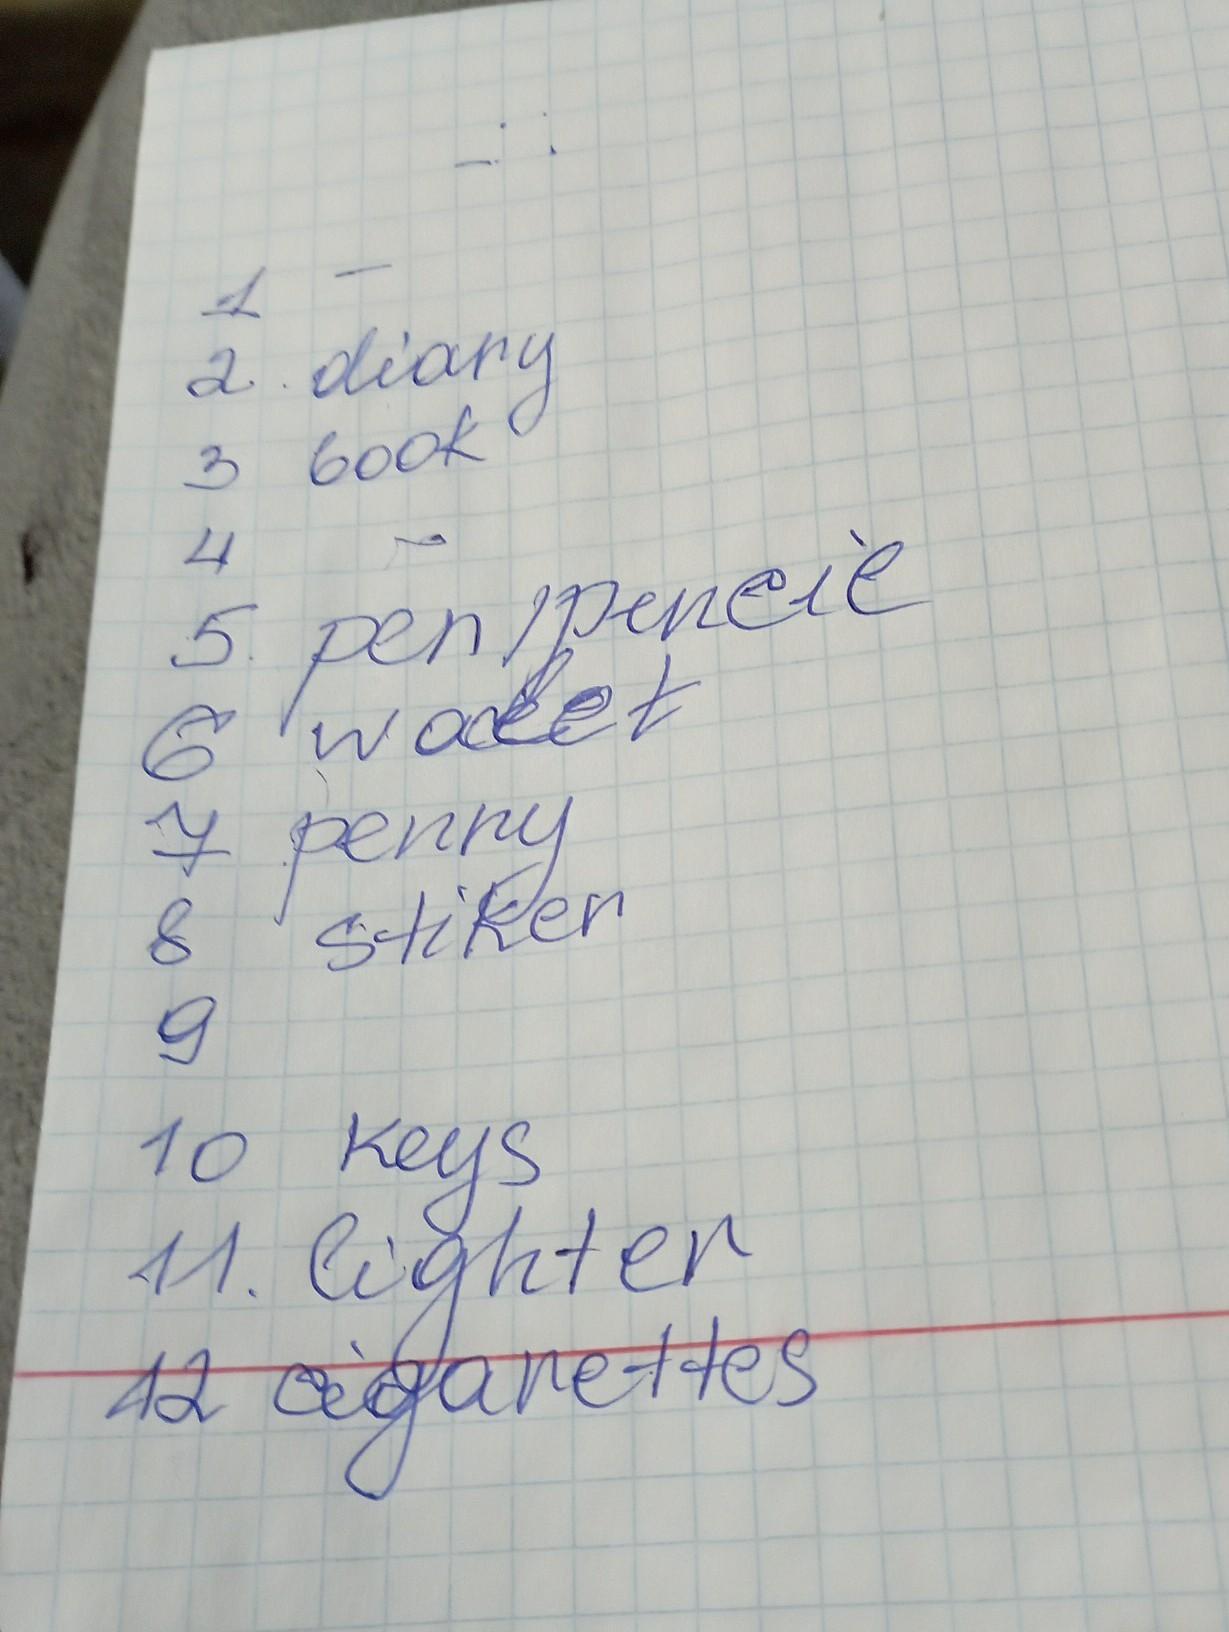 1 —
2. diary
3 book
4 —
5. pen/pencil
6 wallet
7 penny
8 stiker
9
10 keys
11. lighter
12 cigarettes